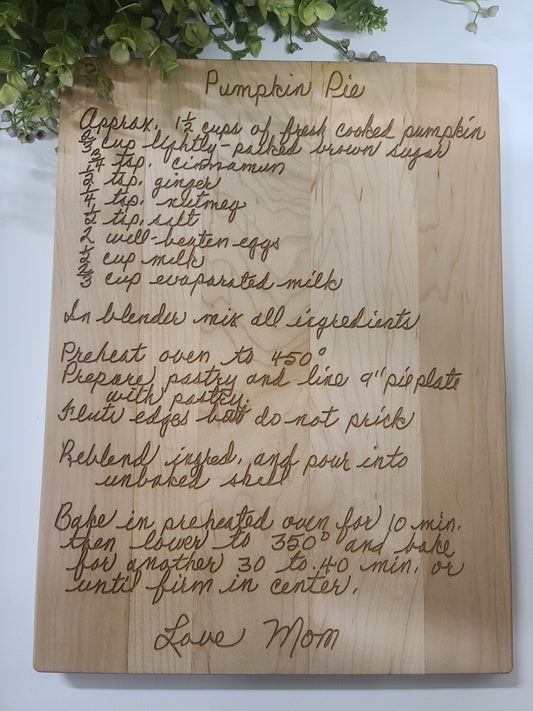 Pumpkin Pie
Approx. 1½ cups of fresh cooked pumpkin
⅔ cup lightly-packed brown sugar
¾ tsp. cinnamon
½ tsp. ginger
¼ tsp. nutmeg
½ tsp. salt
2 well-beaten eggs
½ cup milk
⅔ cup evaporated milk
In blender mix all ingredients
Preheat oven to 450°
Prepare pastry and line 9" pie plate
with pastry.
Flute edges but do not prick
Reblend ingred. and pour into
unbaked shell
Bake in preheated oven for 10 min.
then lower to 350° and bake
for another 30 to 40 min. or
until firm in center.
Love Mom